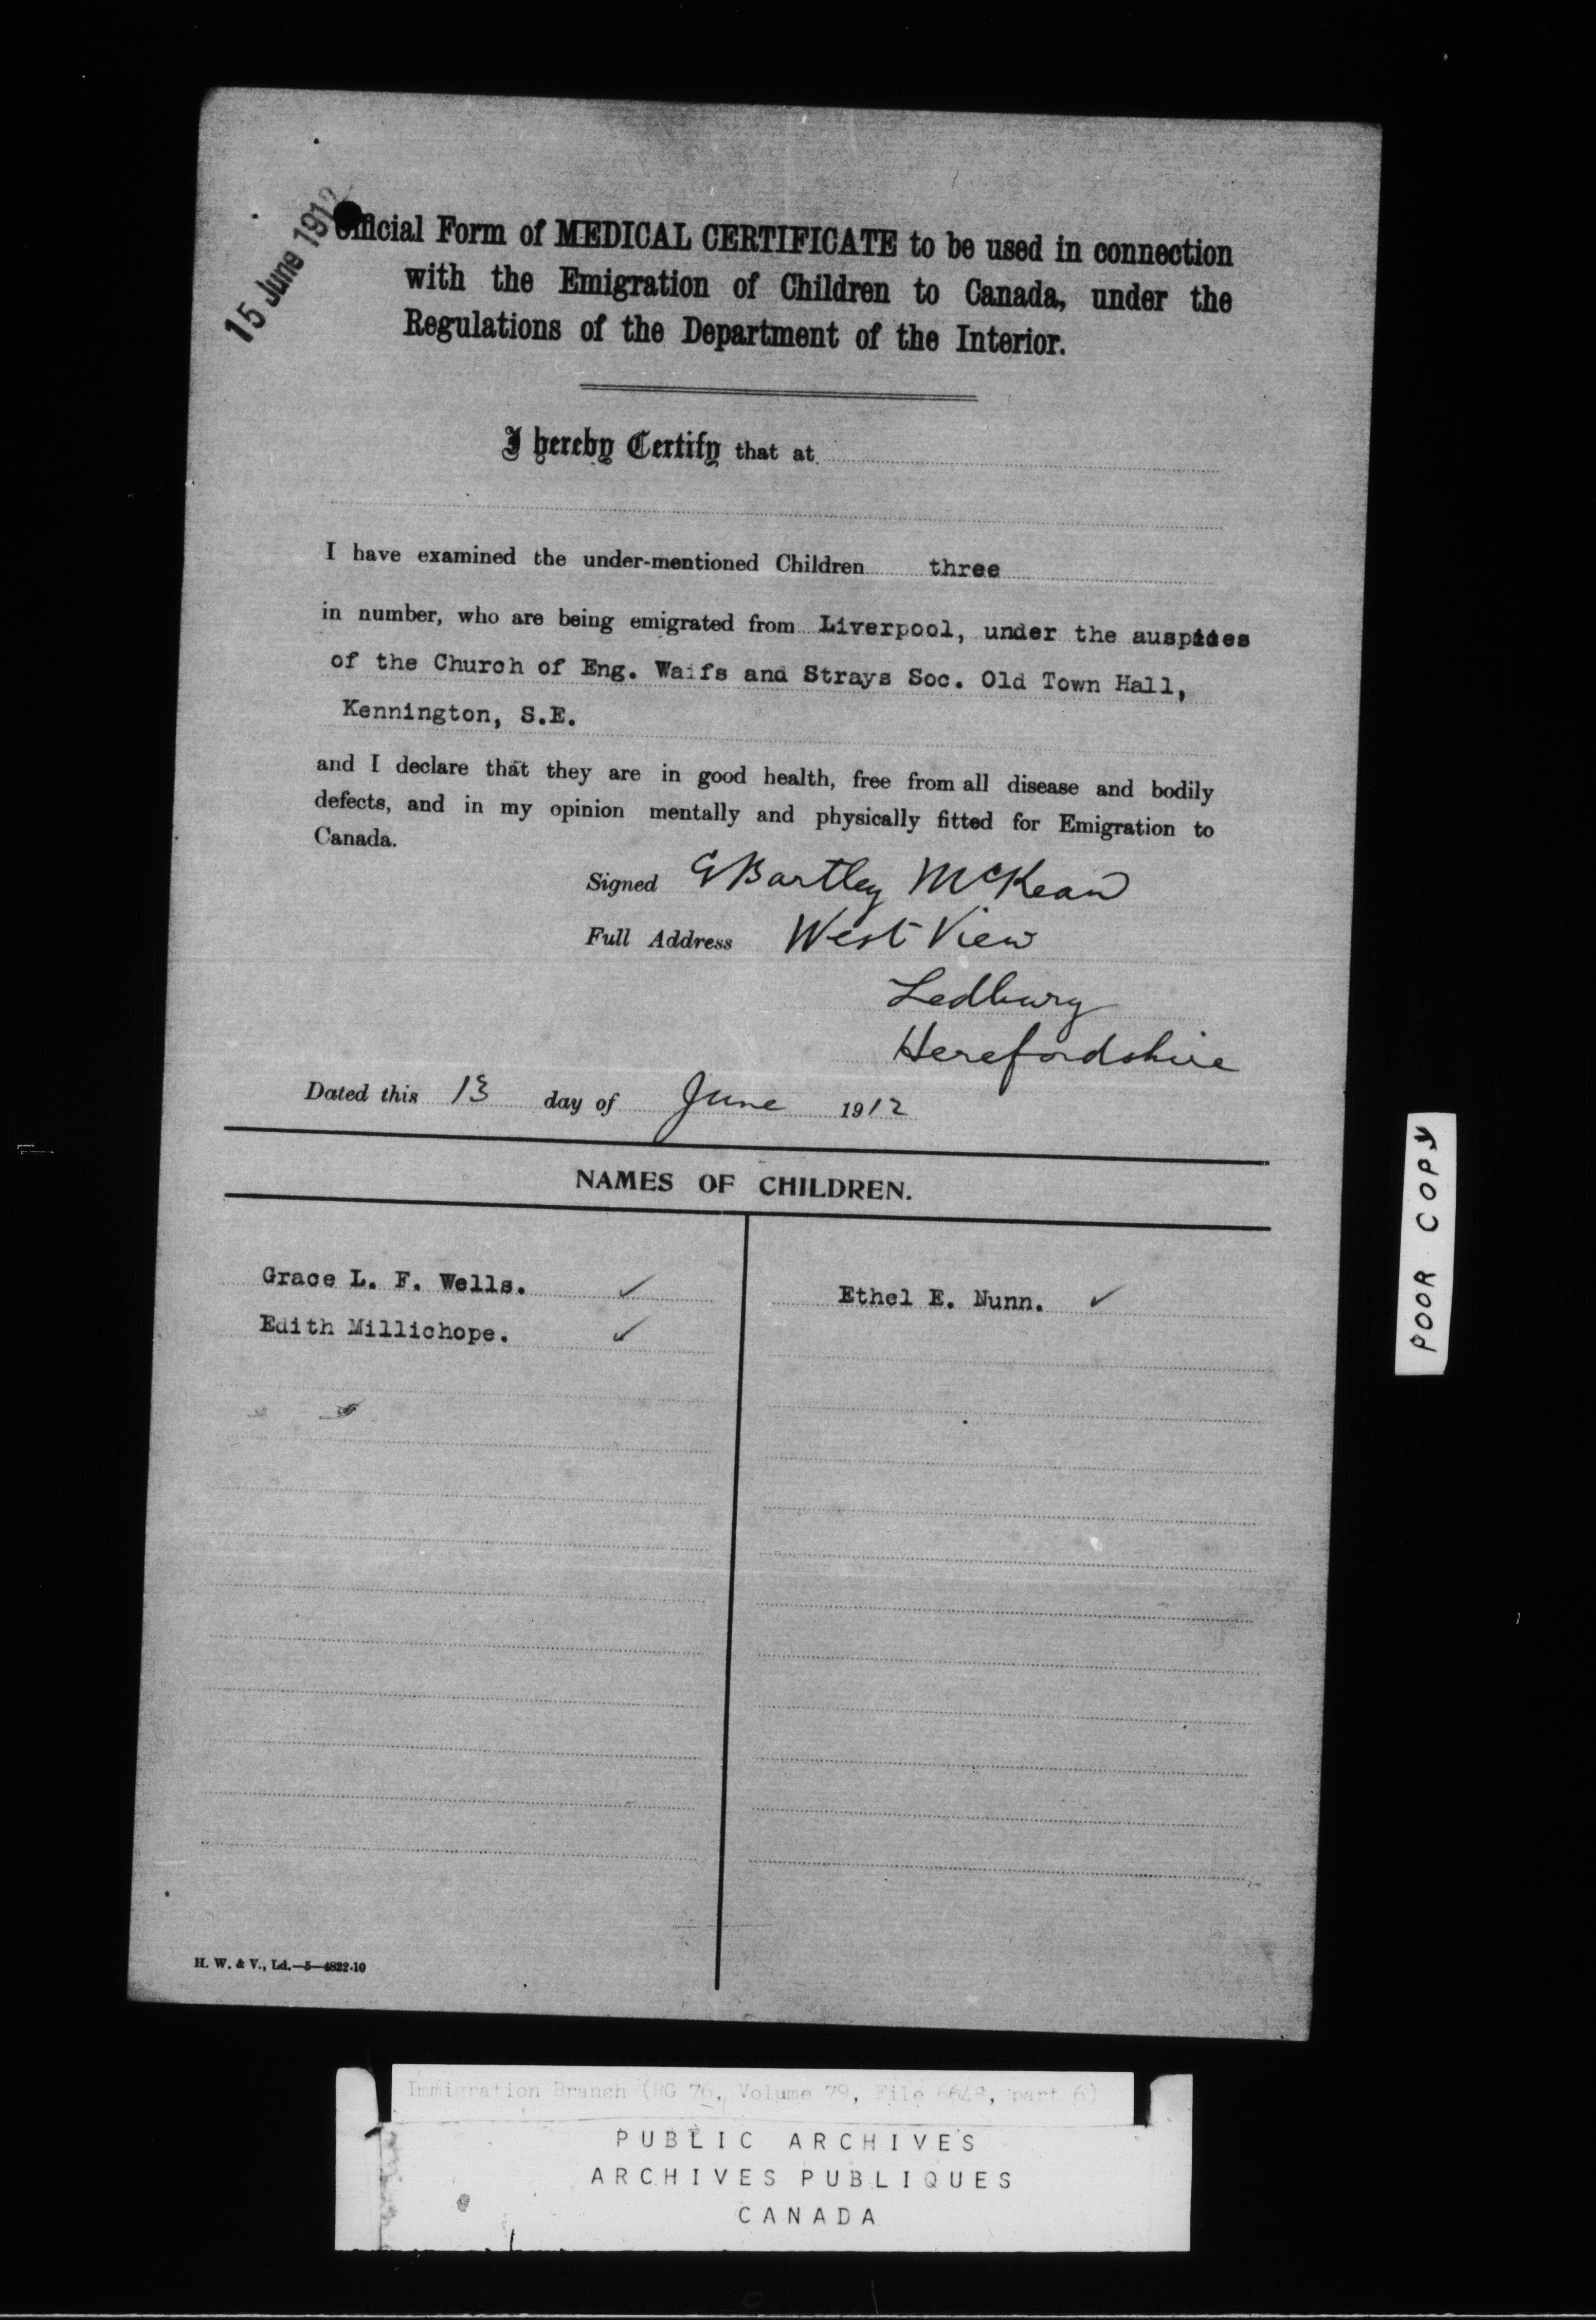 15 June 1912
Official Form of MEDICAL CERTIFICATE to be used in connection
with the Emigration of Children to Canada, under the
Regulations of the Department of the Interior.
I hereby Certify that at
I have examined the under-mentioned Children three
in number, who are being emigrated from Liverpool, under the auspides
of the Church of Eng. Waifs and Strays Soc. Old Town Hall,
Kennington, S.E.
and I declare that they are in good health, free from all disease and bodily
defects, and in my opinion mentally and physically fitted for Emigration to
Canada.
Signed G Bartley McKean
Full Address West View
Ledbury
Herefordshire
Dated this 13 day of June 1912
NAMES OF CHILDREN.
Grace L. F. Wells. ✓
Edith Millichope. ✓
Ethel E. Nunn. ✓
H. W. & V., Ld.—5—4822-10
POOR COPY
Immigration Branch (RG 76, Volume 79, File 6648, part 6)
PUBLIC ARCHIVES
ARCHIVES PUBLIQUES
CANADA